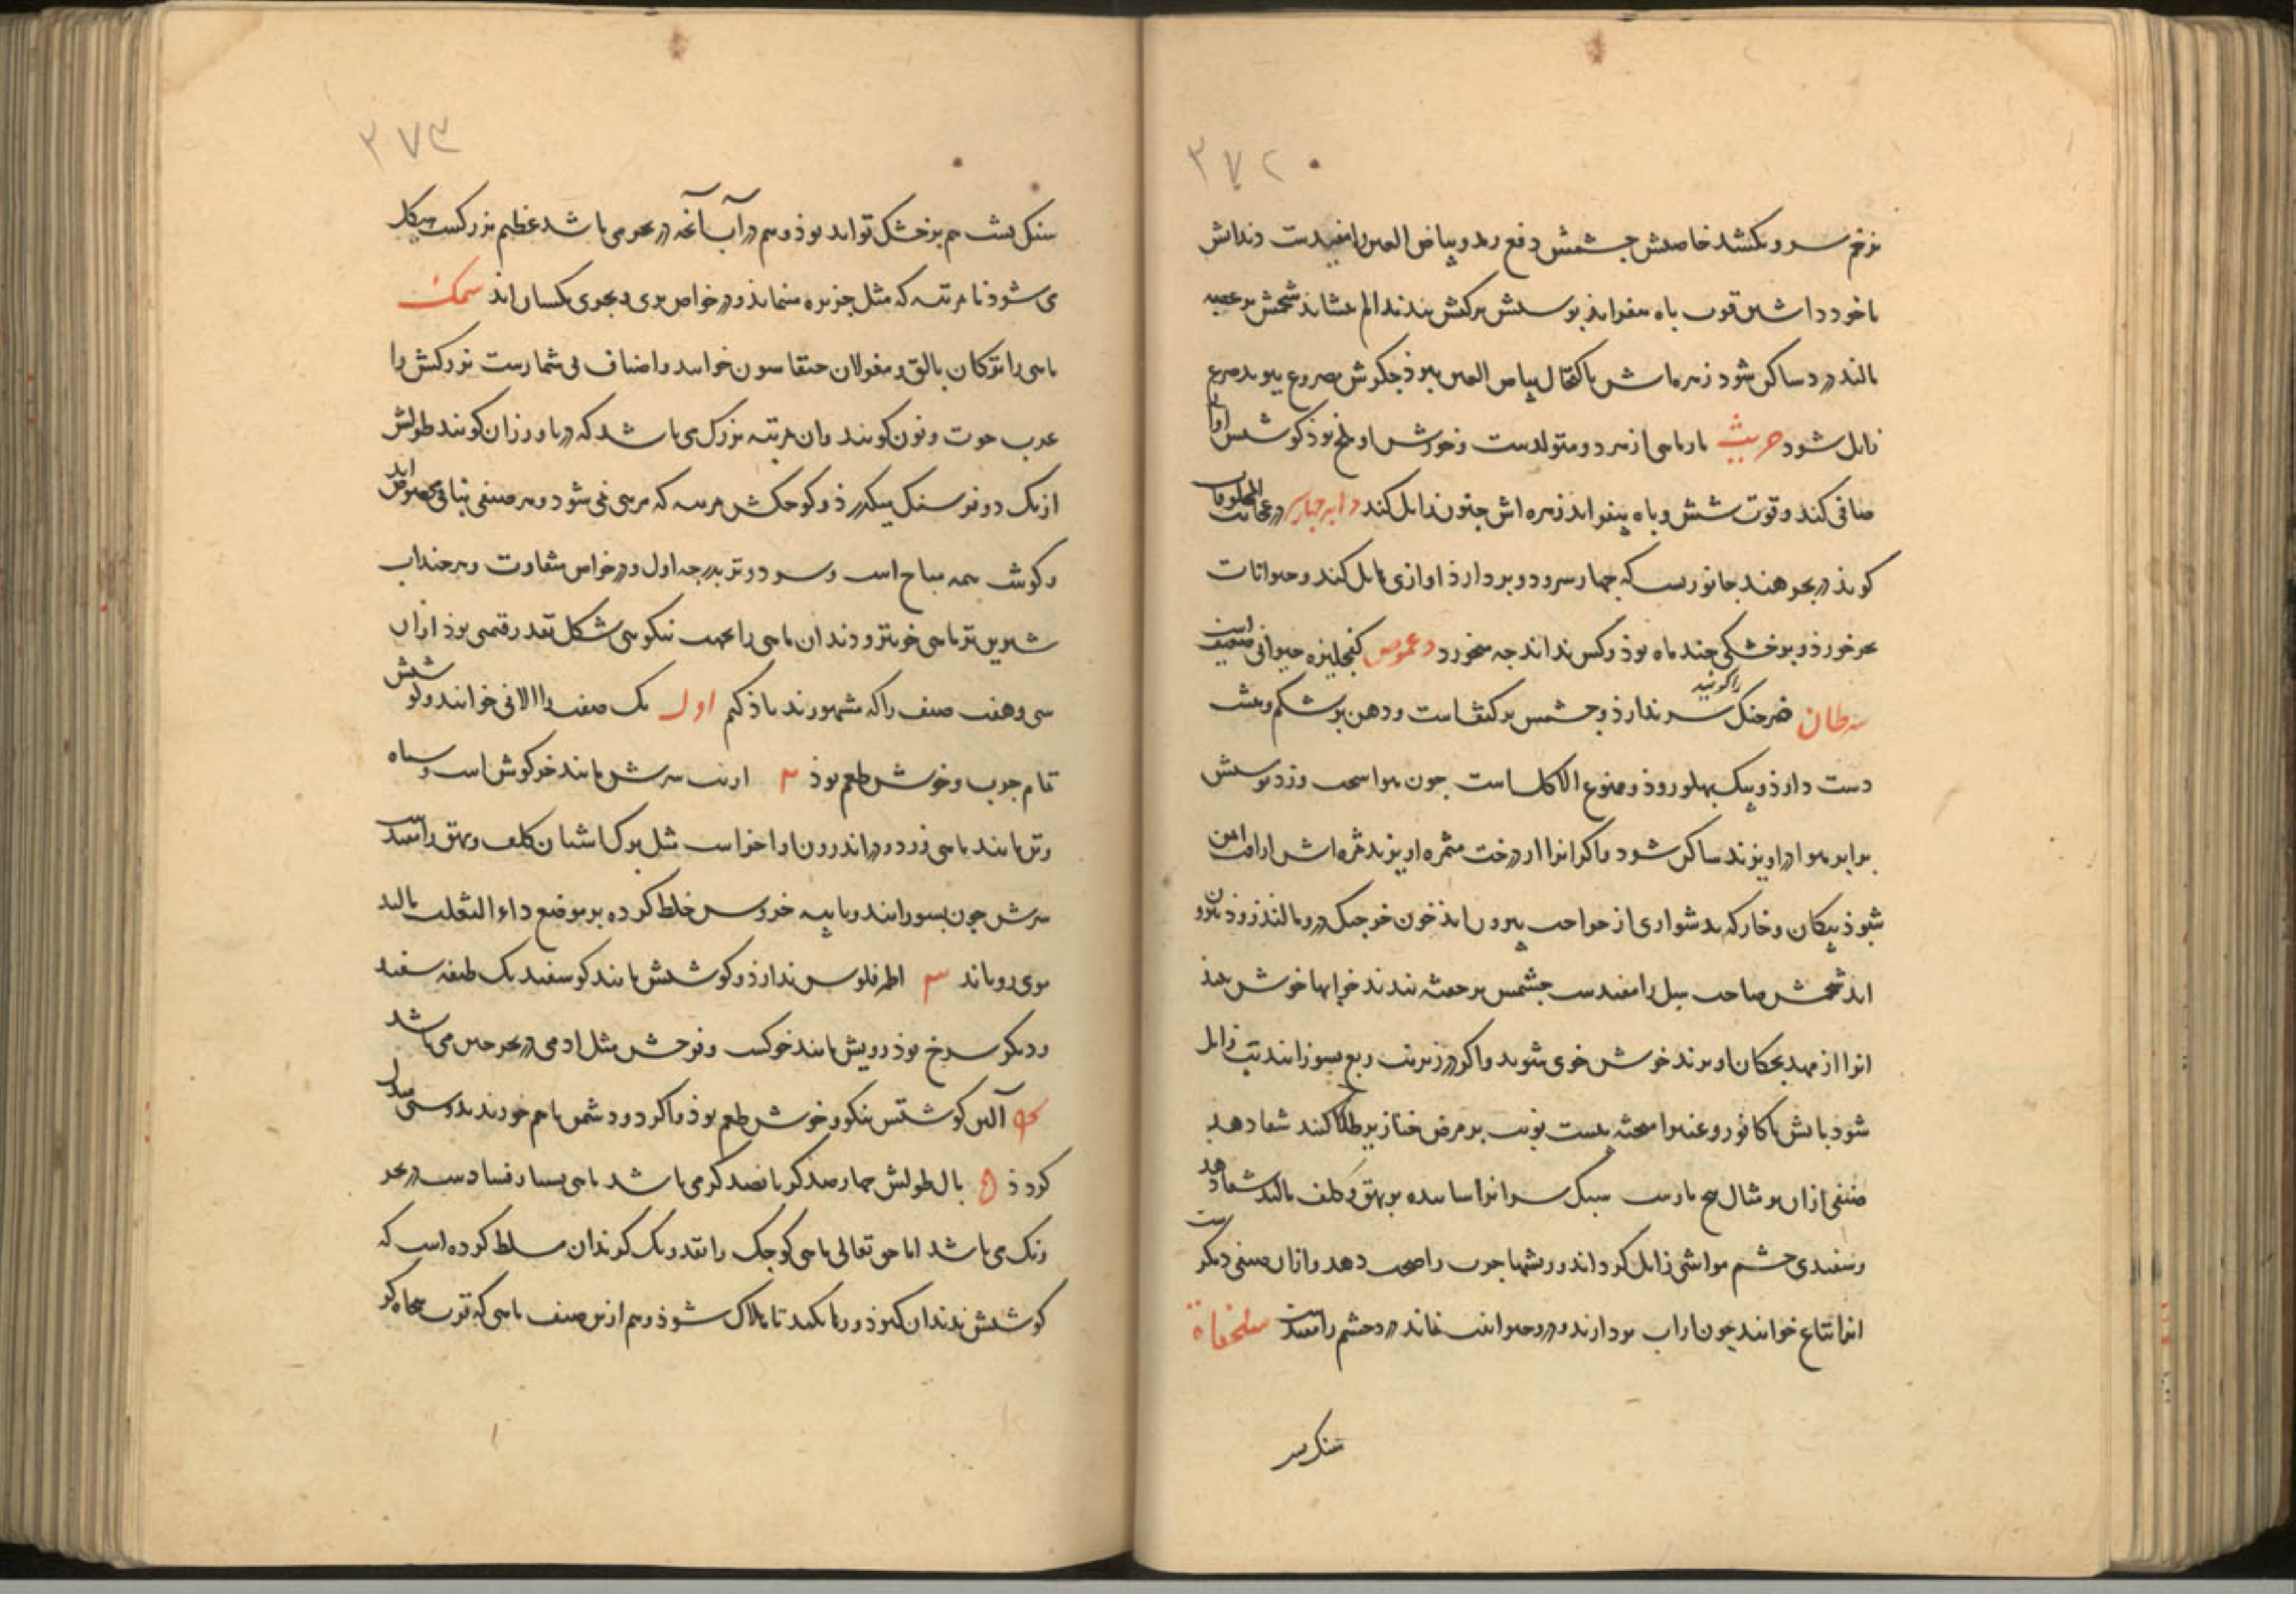 ۳۷۲
بزخم سرو بکشد خاصیتش چشمش دفع رمد و بیاض العین را مفیدست دندانش
باخود داشتن قوت باه بیفزاید پوستش برکش بندند الم بنشاند شحمش بر عصبه
مالند درد ساکن شود زهره‌اش باکتحال بیاض العین ببرد جگرش مصروع بوید صرع
زایل شود جریث مارماهی از هر دو متولدست و خورش او ملخ بوذ کوشتش اواز
صافی کند و قوت شش و باه بیفزاید زهره اش جنون زایل کند دابه جبار در عجایب المخلوقات
کوید در بحر هند جانوریست که چهار سر و دو پر دارد اوازی هایل کند و حیوانات
بحر خورذ و بر خشکی چند ماه بوذ و کس نداند چه میخورد دعموص کفچلیزه حیوانی ضعیف است
سرطان خرچنک را کویند سر ندارذ و چشمش بر کتف است و دهن بر شکم و هشت
دست دارذ و بیک پهلو روذ و ممنوع الاکل است چون هوا سخت وزد پوستش
برابر هوا دراویزند ساکن شود و اکر انرا از درخت مثمره اویزند ثمره اش از آفت ایمن
شود پیکان و خار که بدشواری از جراحت بیرون اید خون خرچنک درو مالند زوذ بیرون
اید شحمش صاحب سل را مفیدست چشمش بر خفته بندند خوابها خوش بیند
انرا از مهد بچکان اویزند خوش خوی شوند و اکر در زیر تب ربع بسوزانند تب زایل
شود پایش با کافور و عنبر امیخته بیست نوبت بر مرض خنازیر طلا کنند شفا دهد
صنفی ازان بر مثال مار است سنک سر انرا ساییده بر بهق و کلف مالند شفا دهد
و سفیدی چشم مواشی زایل کرداند و ریشها جرب را صحت دهد و ازان صنفی دیکر ست
انرا نتاع خوانند چون از اب بردارند درو حیوانیت نماند درد چشم را مفیدست سلحفاة
سنک پشت
۳۷۳
سنک پشت هم بر خشک تواند بوذ و هم در آب آنچه در بحر می باشد عظیم بزرکست هیکل
می شود تا مرتبه که مثل جزیره مینماید و در خواص بری و بحری یکسان اند سمک
ماهی را ترکان بالق و مغولان جیقاسون خوانند و اصناف بی شمارست بزرکش را
عرب حوت و نون کویند و ان مرتبه بزرک می باشد که دریا ورزان کویند طولش
از یک دو فرسنک میکذرذ و کوچکش مرتبه که مرئی نمی شود و هر صنفی بنامی مخصوص اند
و کوشت همه مباح است و سرد و تر بدرجه اول و در خواص متفاوت و هر چند اب
شیرین تر ماهی خوبتر و دندان ماهی را بجهت نیکویی شکل بقدر قیمتی بوذ ازان
سی و هفت صنف را که مشهورند یاذ کنیم اول یک صنف را الافی خوانند و لو شبش
تمام چرب و خوش طعم بوذ ۲ ارنب سرش مانند خرکوش است و سیاه
و تن مانند ماهی و زرد و در اندرون او اجزاست مثل برک اشنان کلف و بهق را مفیدست
سرش چون بسوزانند و با پیه خروس خلط کرده بر موضع داء الثعلب مالند
موی رویاند ۳ اطم فلوس ندارذ و کوشتش مانند کوسفند یک طبقه سفید
و دیکر سرخ بوذ رویش مانند خوکست و فرجش مثل ادمی در بحر چین می باشد
۴ آلس کوشتش نیکو و خوش طعم بوذ و اکر دو دشمن باهم خورند بدوستی مبدل
کردذ ۵ بال طولش چهار صد کز پانصد کز می باشد ماهی بسیار فسادست در بحر
زنک می باشد اما حق تعالی ماهی کوچک را بقدر یک کز بدان مسلط کرده است که
کوشش بدندان کیرد و رها نکند تا هلاک شوذ و هم ازین صنف ماهی که قرب پنجاه کز